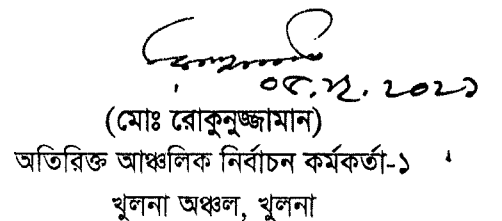 ০৫.১২.২০২১
(মোঃ রোকুনুজ্জামান)
অতিরিক্ত আঞ্চলিক নির্বাচন কর্মকর্তা-১
খুলনা অঞ্চল, খুলনা